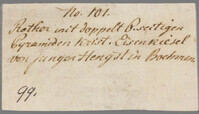 No. 101.
Rother mit doppelt 6seitigen
Pyramiden krist. Eisenkiesel
von jungen Hengst in Boehmen
99.